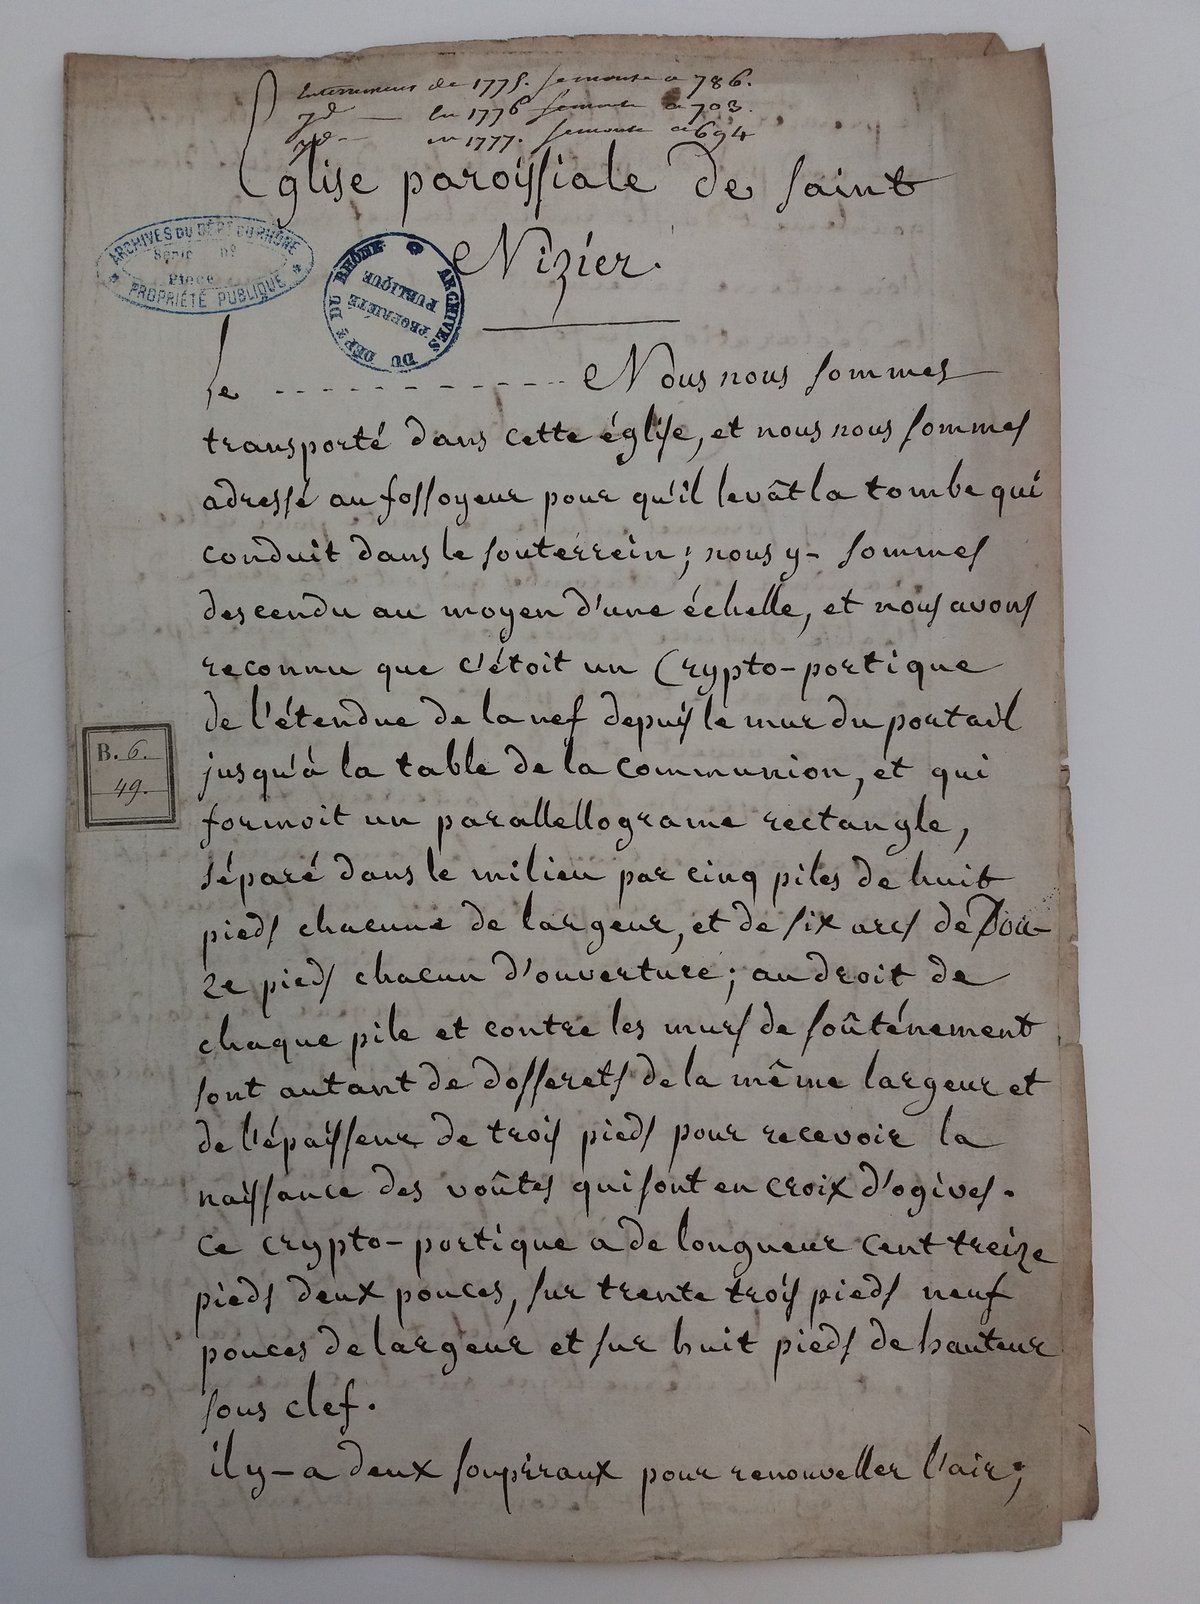 Enterremens de 1775. se monte a 786.
yd — en 1776 se monte a 703.
yd — en 1777. se monte a 694
Eglise paroissiale de saint
Nizier.
ARCHIVES DU DÉPT DU RHÔNE
Série nº
Pièce
PROPRIÉTÉ PUBLIQUE
ARCHIVES DU DÉPT DU RHÔNE
PROPRIÉTÉ
PUBLIQUE
Le - - - - - - - - - - - - - Nous nous sommes
transporté dans cette église, et nous nous sommes
adressé au fossoyeur pour qu'il levât la tombe qui
conduit dans le souterrein; nous y - sommes
descendu au moyen d'une échelle, et nous avons
reconnu que c'étoit un Crypto-portique
de l'étendue de la nef depuis le mur du portail
jusqu'à la table de la communion, et qui
B. 6.
49.
formoit un parallellograme rectangle,
séparé dans le milieu par cinq piles de huit
pieds chacune de largeur, et de six arcs de Dou-
ze pieds chacun d'ouverture; au droit de
chaque pile et contre les murs de soûténement
sont autant de dosserets de la même largeur et
de l'épaisseur de trois pieds pour recevoir la
naissance des voûtes qui sont en croix d'ogives.
Ce crypto-portique a de longueur cent treize
pieds deux pouces, sur trente trois pieds neuf
pouces de largeur et sur huit pieds de hauteur
sous clef.
il y - a deux soupiraux pour renouveller l'air;